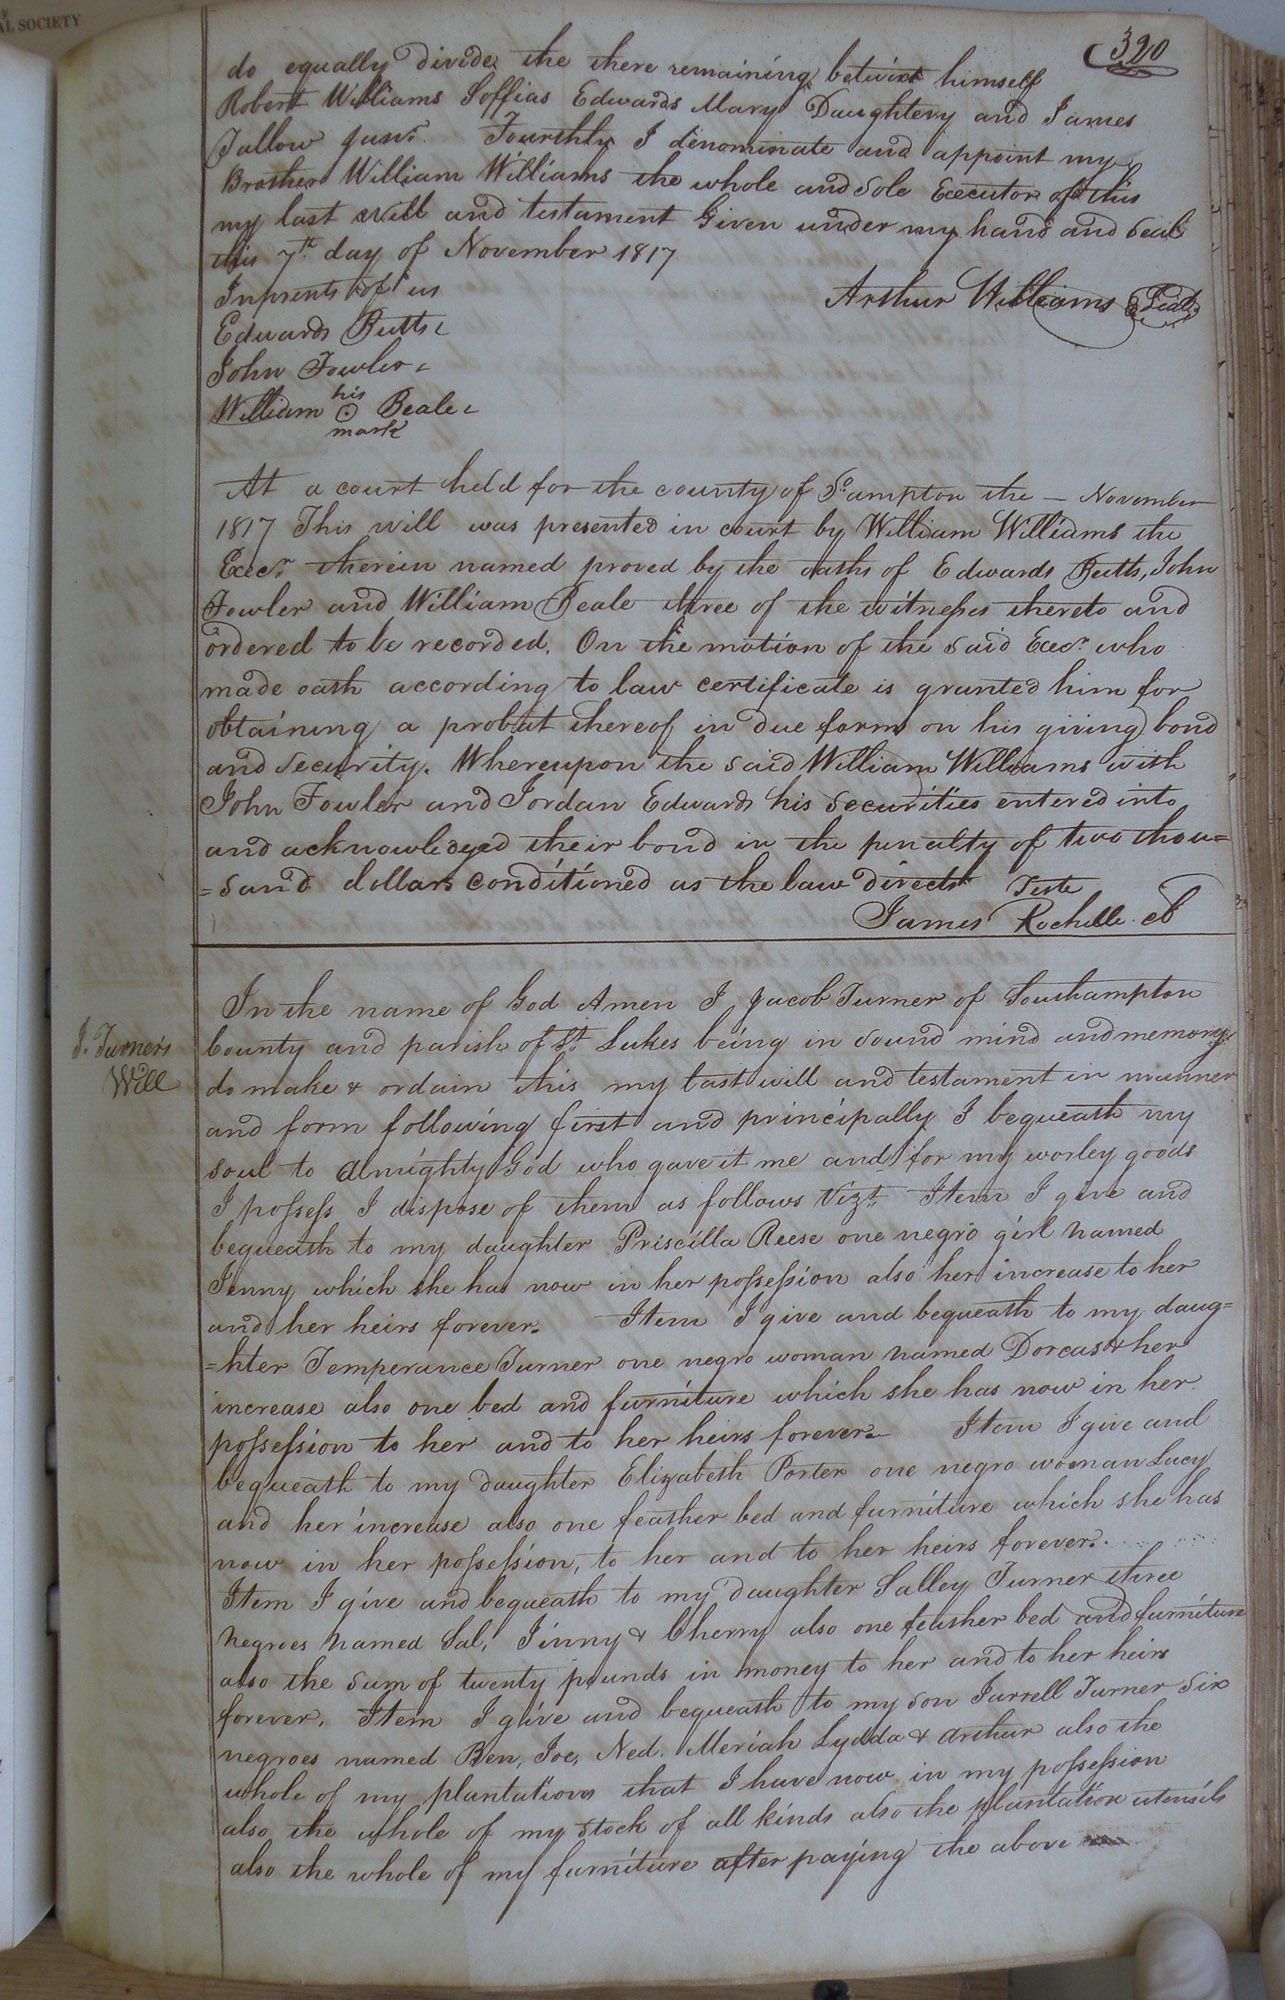 AL SOCIETY
320
do equally divide the there remaining betwixt himself
Robert Williams Soffias Edwards Mary Daughtery and James
Tallow junr. Fourthly I denominate and appoint my
Brother William Williams the whole and sole Executor of this
my last will and testament Given under my hand and seal
this 7th day of November 1817
Inprents of us
Arthur Williams Seal
Edwards Butts
John Fowler
his
William Beale
mark
At a court held for the county of So.ampton the — November
1817 This will was presented in court by William Williams the
Execr. therein named proved by the oaths of Edwards Butts, John
Fowler and William Beale three of the witnesses thereto and
ordered to be recorded. On the motion of the said Execr. who
made oath according to law certificate is granted him for
obtaining a probat thereof in due form on his giving bond
and security. Whereupon the said William Williams with
John Fowler and Jordan Edwards his securities entered into
and acknowledged their bond in the penalty of two thou=
=sand dollars conditioned as the law directs Teste
James Rochelle
In the name of God Amen I Jacob Turner of Southampton
J. Turner's
Will
County and parish of St. Lukes being in sound mind and memory
do make & ordain this my last will and testament in manner
and form following first and principally I bequeath my
soul to almighty God who gave it me and for my worley goods
I possess I dispose of them as follows Vizt. Item I give and
bequeath to my daughter Priscilla Reese one negro girl named
Jenny which she has now in her possession also her increase to her
and her heirs forever. Item I give and bequeath to my daug=
=hter Temperance Turner one negro woman named Dorcas & her
increase also one bed and furniture which she has now in her
possession to her and to her heirs forever. Item I give and
bequeath to my daughter Elizabeth Porter one negro woman Lucy
and her increase also one feather bed and furniture which she has
now in her possession, to her and to her heirs forever.
Item I give and bequeath to my daughter Salley Turner three
negroes named Sal, Jinny & Cherry also one feather bed and furniture
also the sum of twenty pounds in money to her and to her heirs
forever. Item I give and bequeath to my son Jarrell Turner six
negroes named Ben, Joe, Ned. Meriah Lydda & Arthur also the
whole of my plantations that I have now in my possession
also the whole of my stock of all kinds also the plantation utensils
also the whole of my furniture after paying the above